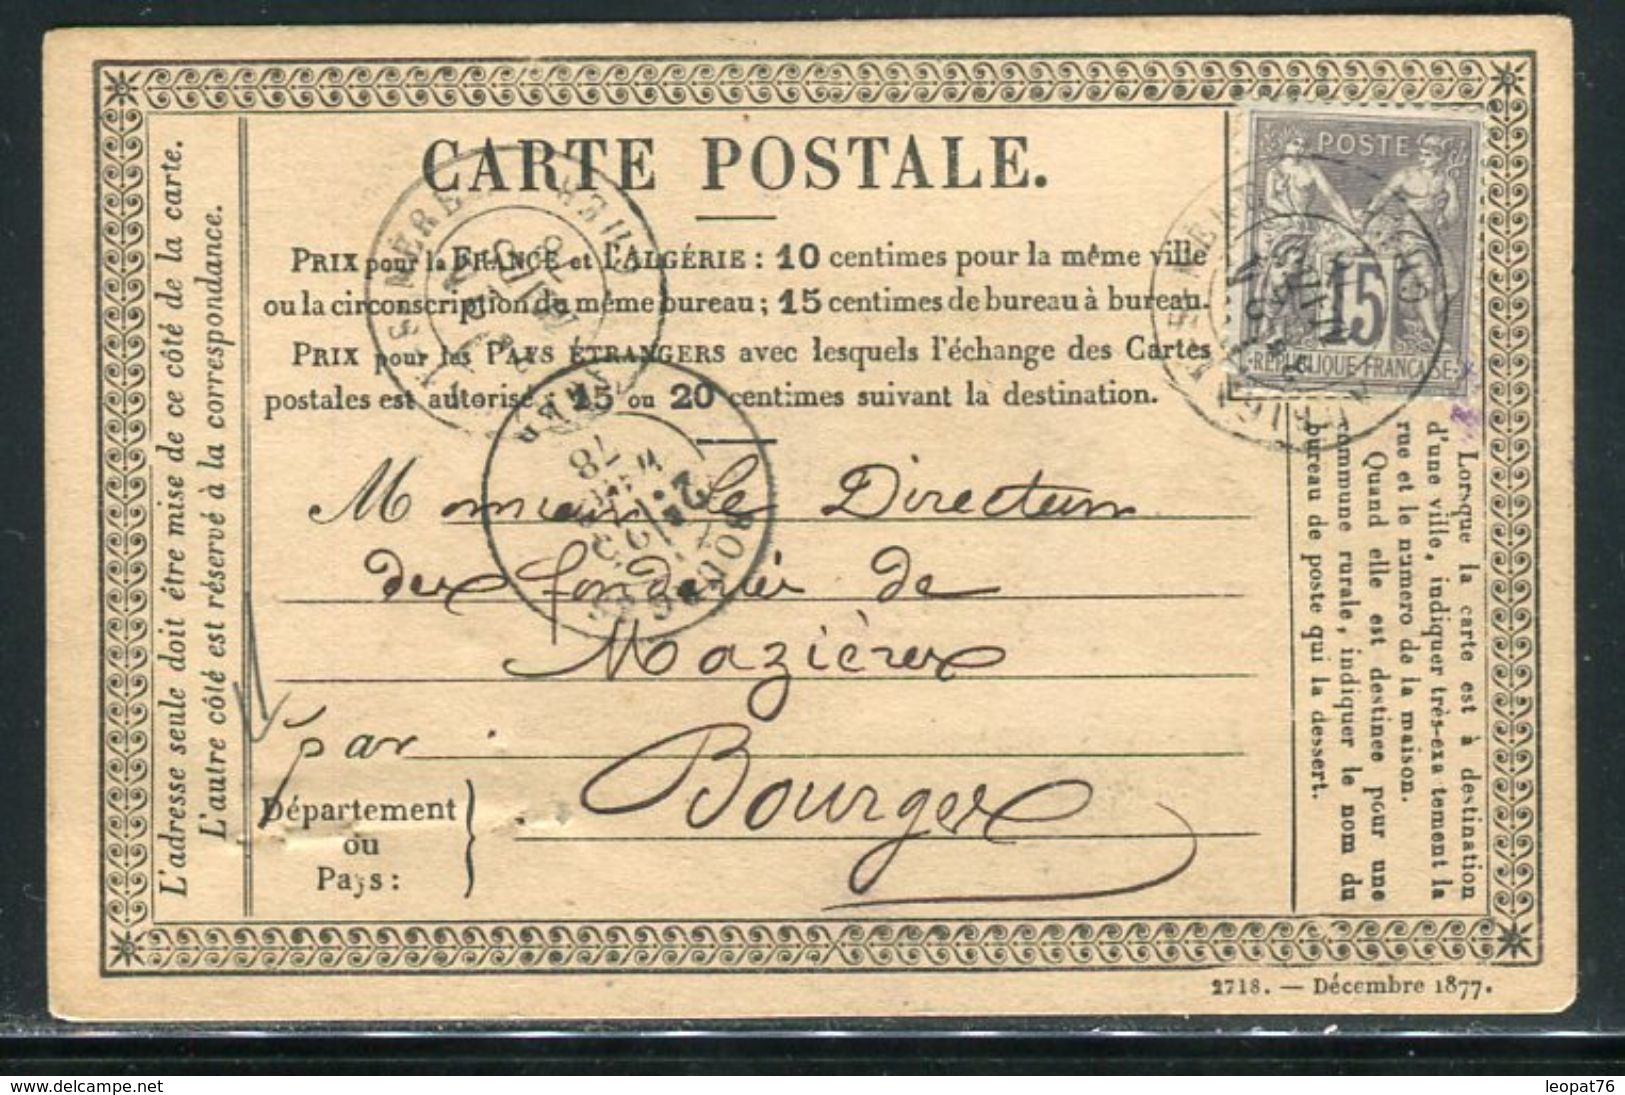 CARTE POSTALE.
PRIX pour la FRANCE et l'ALGÉRIE : 10 centimes pour la même ville
ou la circonscription du même bureau ; 15 centimes de bureau à bureau.
PRIX pour les PAYS ÉTRANGERS avec lesquels l'échange des Cartes
postales est autorisé : 15 ou 20 centimes suivant la destination.
Monsieur le Directeur
des fonderies de
Mazières
par
Bourges
Département
ou
Pays :
L'adresse seule doit être mise de ce côté de la carte.
L'autre côté est réservé à la correspondance.
POSTE
15
REPUBLIQUE FRANCAISE
CHER
78
BOURGES
78
Lorsque la carte est à destination
d'une ville, indiquer très-exactement la
rue et le numero de la maison.
Quand elle est destinee pour une
commune rurale, indiquer le nom du
bureau de poste qui la dessert.
2718. — Décembre 1877.
leopat76